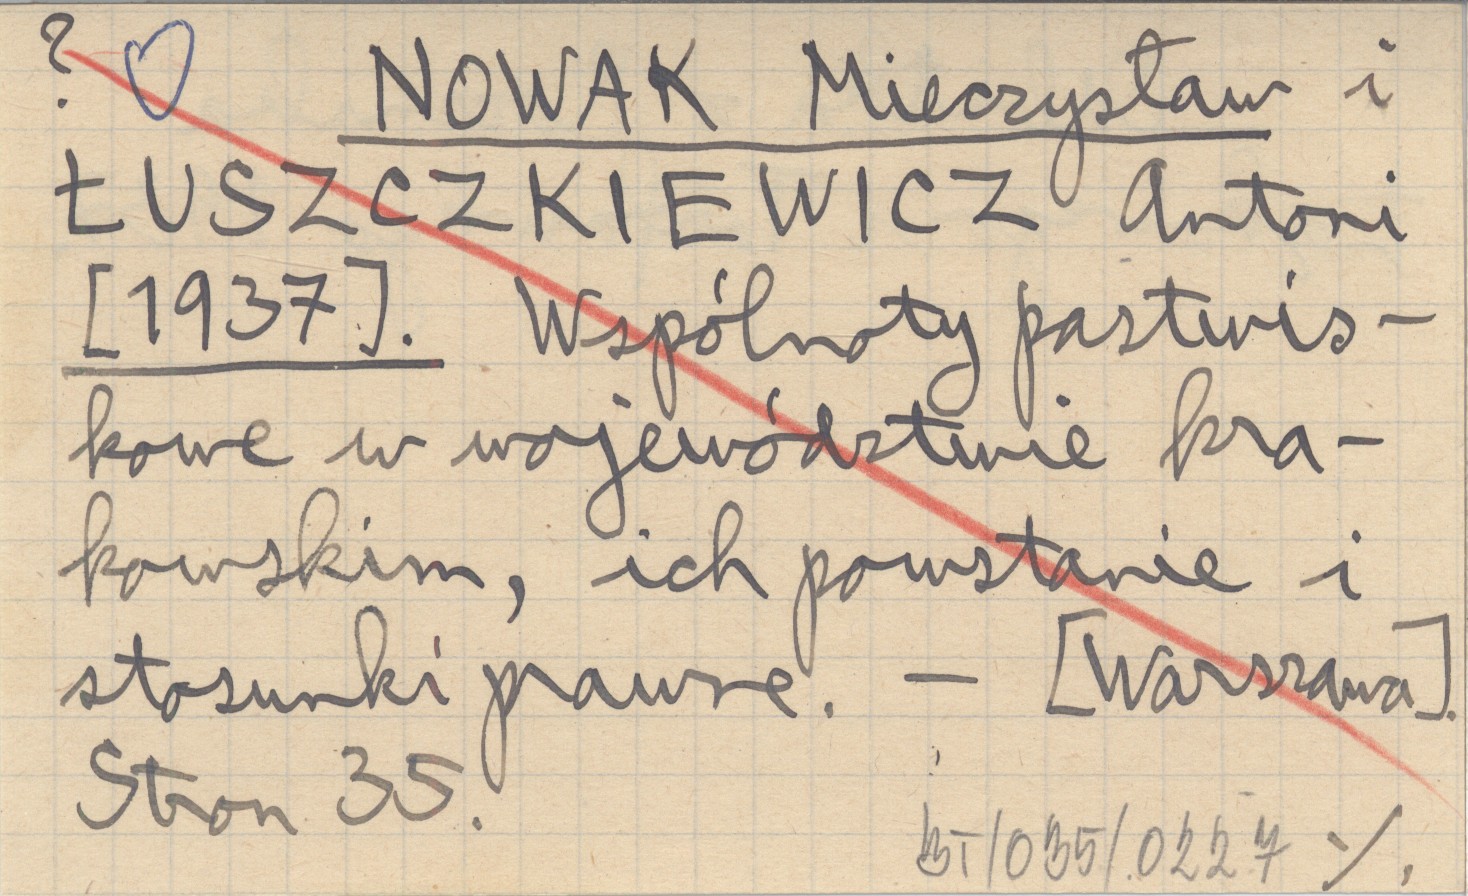 ? NOWAK Mieczysław i
ŁUSZCZKIEWICZ Antoni
[1937]. Wspólnoty pastwis-
kowe w województwie kra-
kowskim, ich powstanie i
stosunki prawne. — [Warszawa].
Stron 35.
BT/035/.0227 ·/.